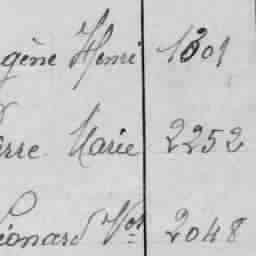 gène Henri 1301
rre Marie 2252
éonard Vor 2048